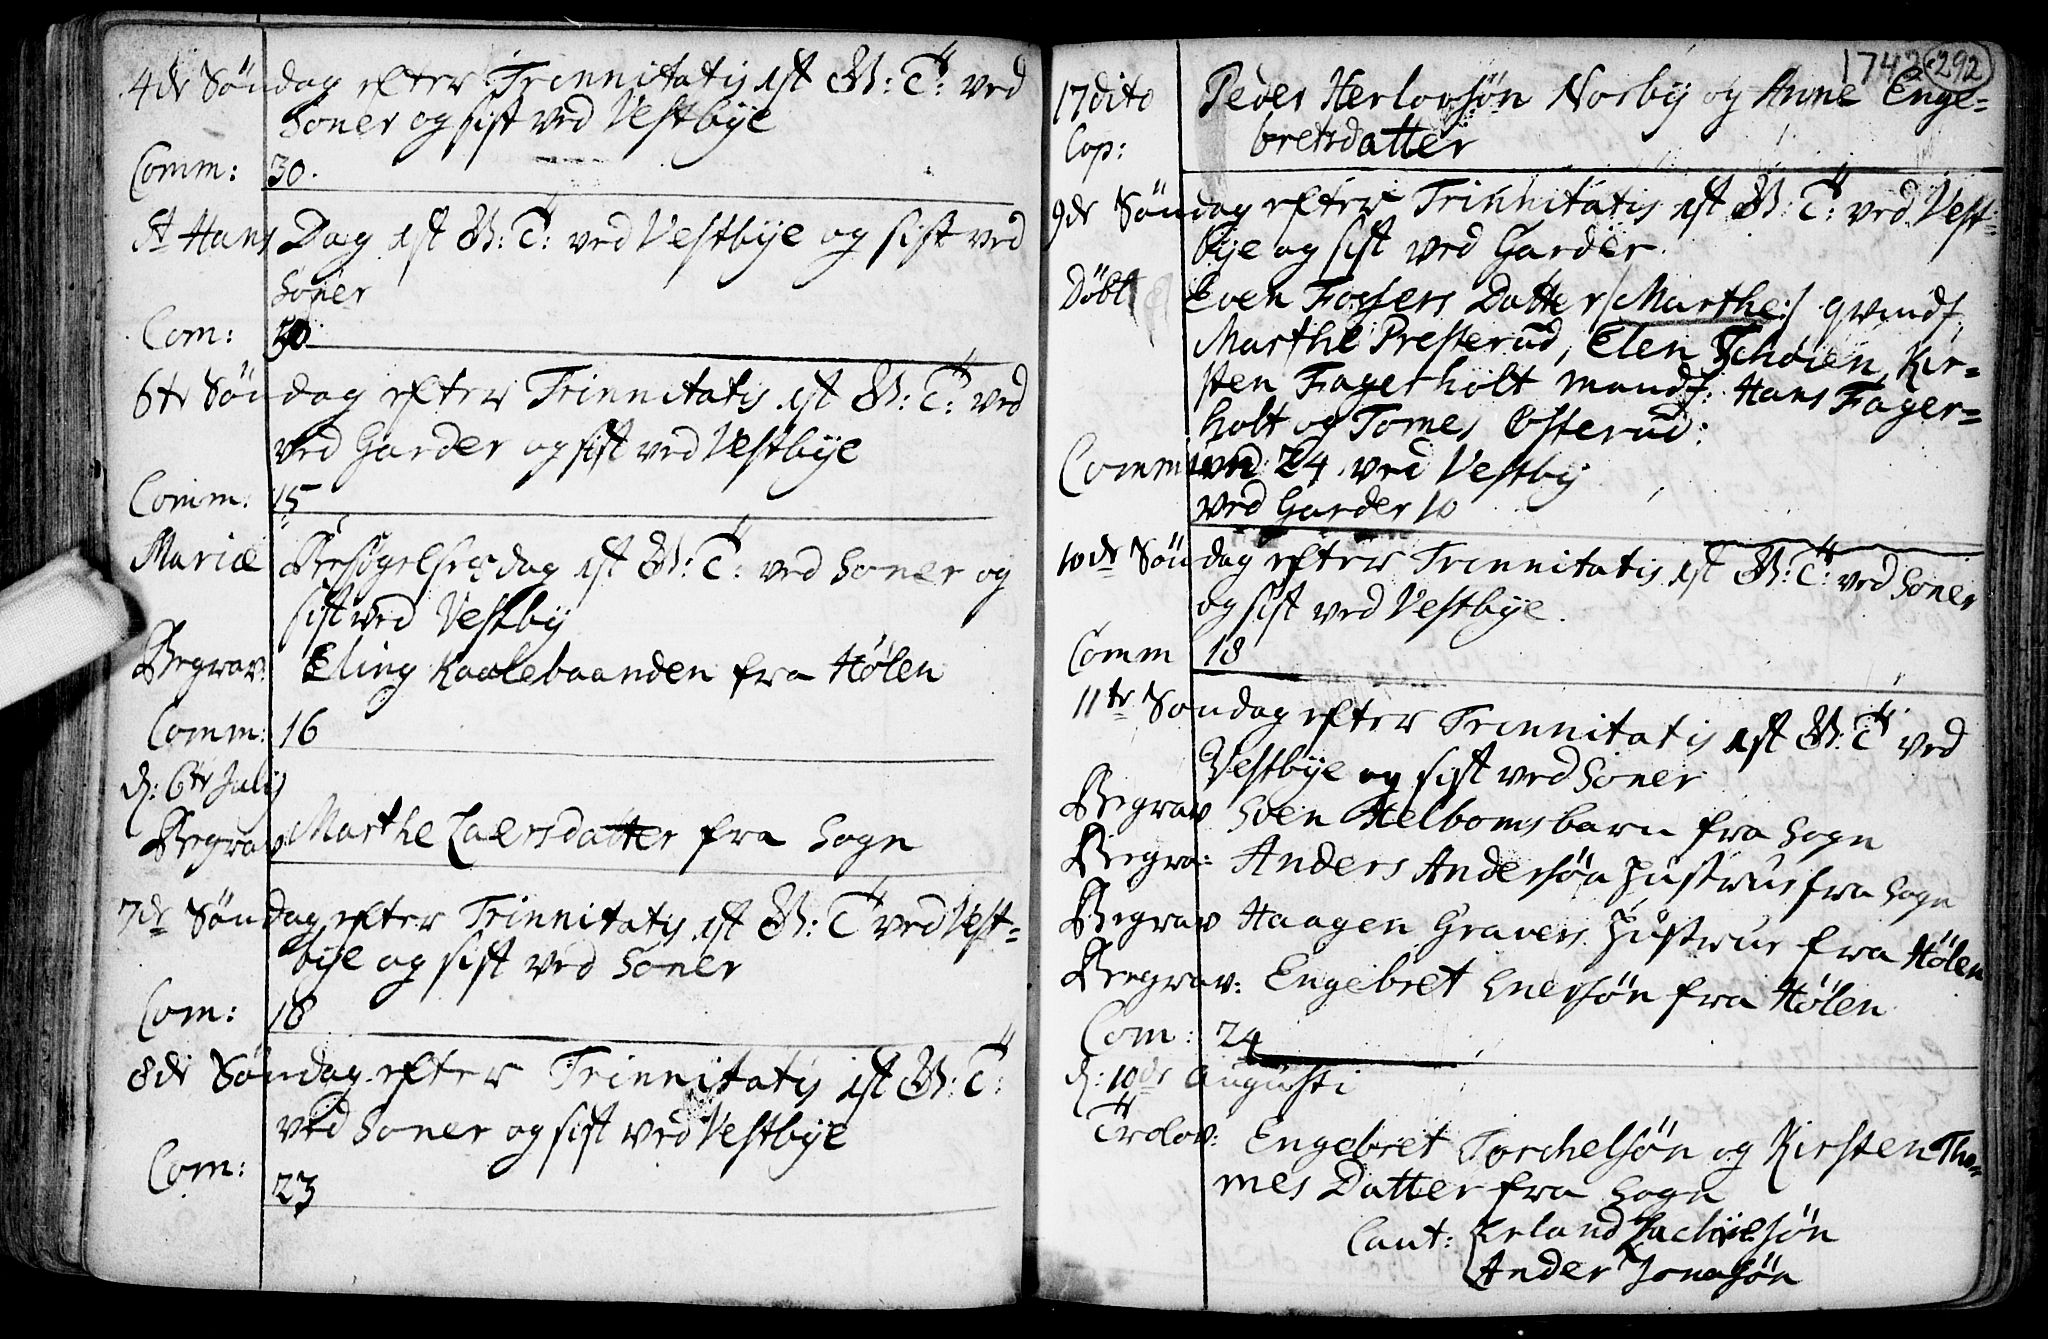 4de Søndag efter Trinnitatis 1st G: T: ved
Soner og sist ved Vestbye
Comm: 30.
St Hans Dag 1st G: T: ved Vestbye og sist ved
Soner
Com: 50
6te Søndag efter Trinnitatis 1st G: T: ved
ved Garder og sist ved Vestbye
Comm: 15
Mariæ Besøgelses dag 1st G: T: ved Soner og
sist ved Vestby
Begrav: Eling Kaalebaanden fra Hølen
Comm: 16
d: 6te Julij
Begrav: Marthe Laersdatter fra Sogn
7de Søndag efter Trinnitatis 1st G: T: ved Vest=
bye og sist ved Soner
Com: 18
8de Søndag efter Trinnitatis 1st G: T:
ved Soner og sist ved Vestbye
Com: 23
1742 292
17 dito Peder Herlovsøn Norby og Anne Enge=
Cop: bretsdatter
9de Søndag efter Trinnitatis 1st G: T: ved Vest=
bye og sist ved Garder
Døbt Even Fossers Datter /:Marthe:/ qvindf.
Marthe Presterud, Elen Schoien, Kir=
sten Fagerholt mandf: Hans Fager=
holt og Tomes Osterud:
Comm: 24 ved Vestby
ved Garder 10
10de Søndag efter Trinnitatis 1st G: T: ved Soner
og sist ved Vestbye.
Comm 18
11te Søndag efter Trinnitatis 1st G: T: ved
Vestbye og sist ved Soner
Begrav Soen Helboms barn fra Sogn
Begra: Anders Andersøn Hustrue fra Sogn
Begrav Haagen Gravers Hustrue fra Hølen
Begrav: Engebret Enersøn fra Hølen
Com: 24
d: 10de Augusti
Trolov: Engebret Torchelsøn og Kirsten Tho=
mes Datter fra Sogn
Caut: Erland Zachriesøn
Ander Jonasøn